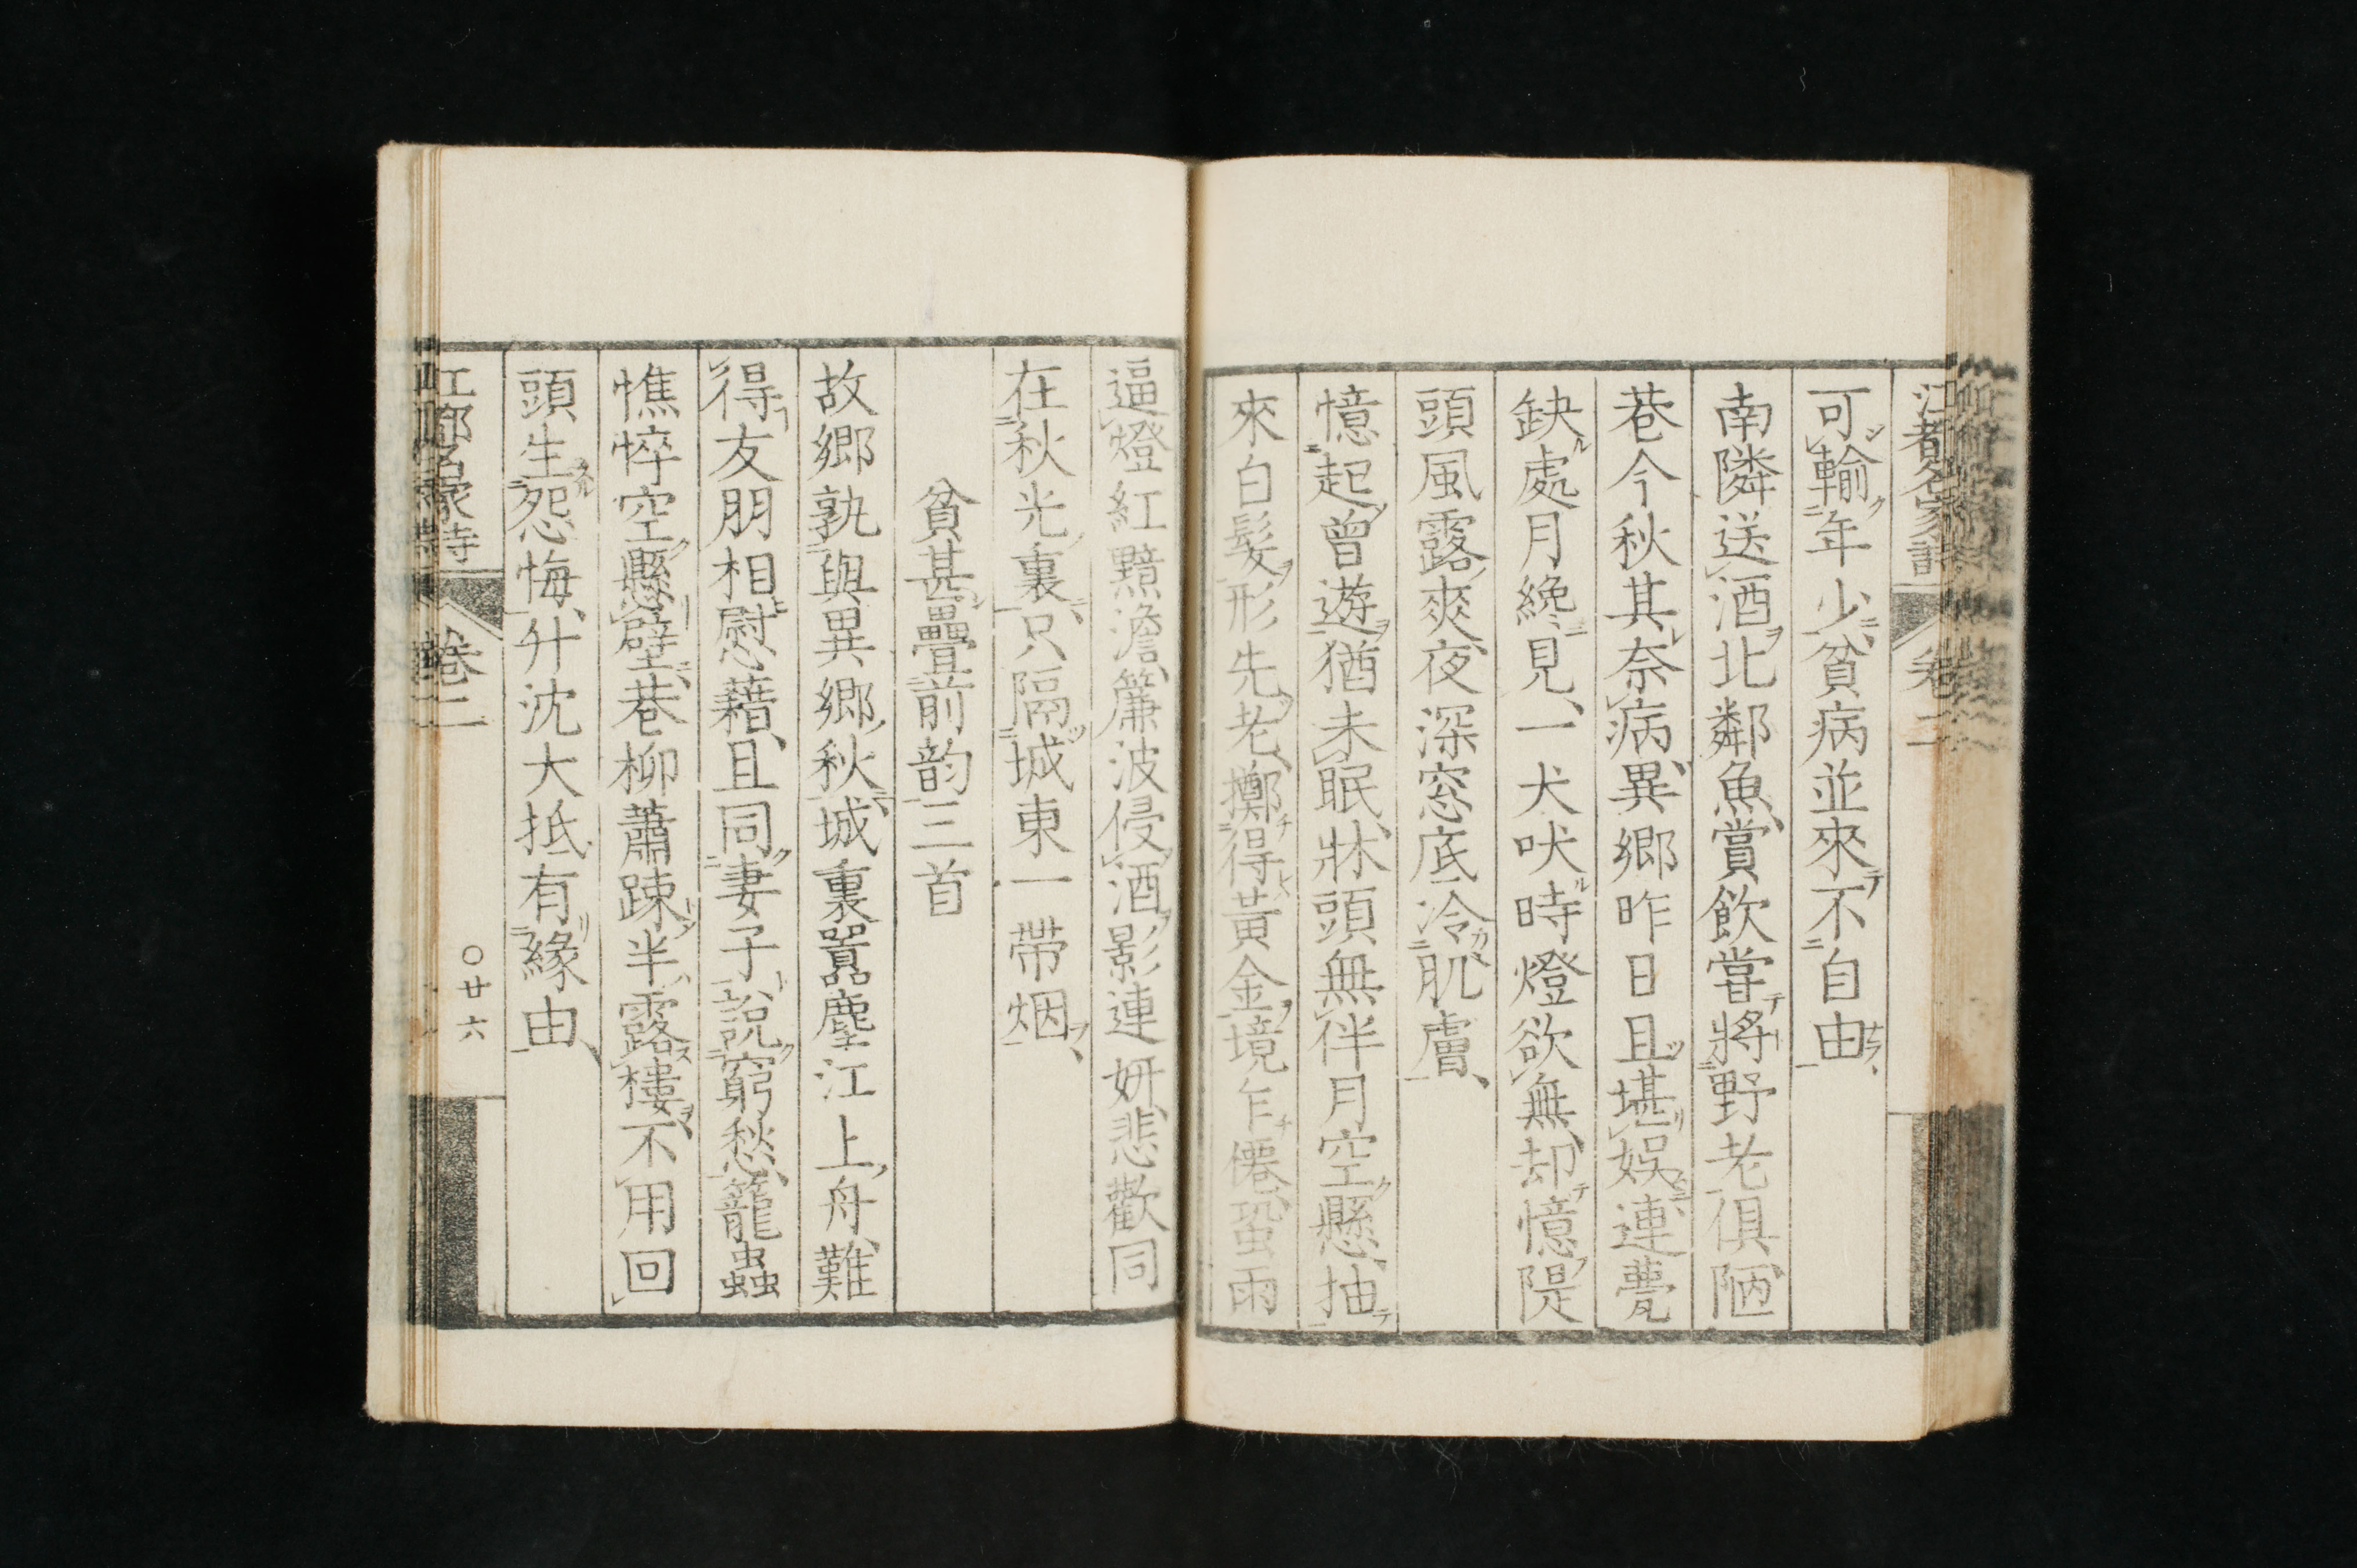 江都名家詩 卷二
可輸年少、貧病並來不自由、
南隣送酒北鄰魚、賞飲嘗將野老俱、陋
巷今秋其奈病、異鄉昨日且堪娛、連甍
缺處月纔見、一犬吠時燈欲無、却憶隄
頭風露爽、夜深窓底冷肌膚、
憶起曾遊猶未眠、牀頭無伴月空懸、抽
來白髮形先老、擲得黃金境乍僊、蛩雨
逼燈紅黯澹、簾波侵酒影連妍、悲歡同
在秋光裏、只隔城東一帶烟、
貧甚疊前韵三首
故鄉孰與異鄉秋、城裏嚣塵江上舟、難
得友朋相慰藉、且同妻子說窮愁、籠蟲
憔悴空懸壁、巷柳蕭踈半露樓、不用回
頭生怨悔、升沈大抵有緣由、
江都名家詩 卷二 〇廿六